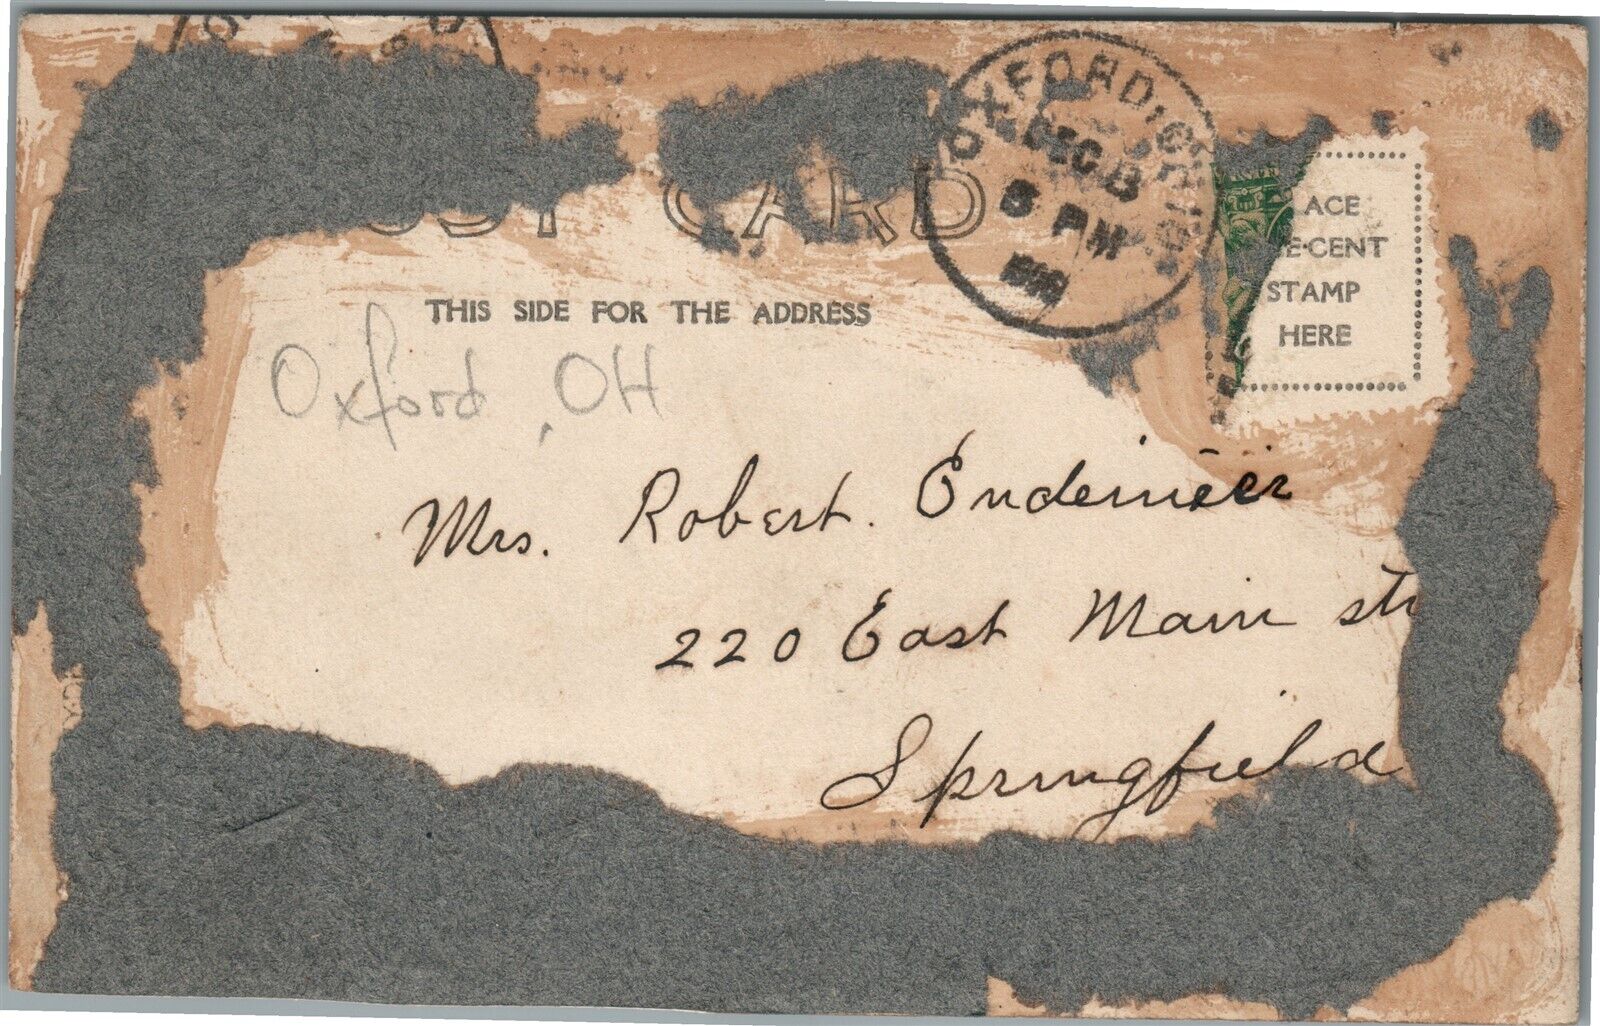 OXFORD, OHIO
DEC 23
5 PM
CARD
ACE
E-CENT
STAMP
HERE
THIS SIDE FOR THE ADDRESS
Oxford, OH
Mrs. Robert. Endemeer
220 East Main str
Springfield